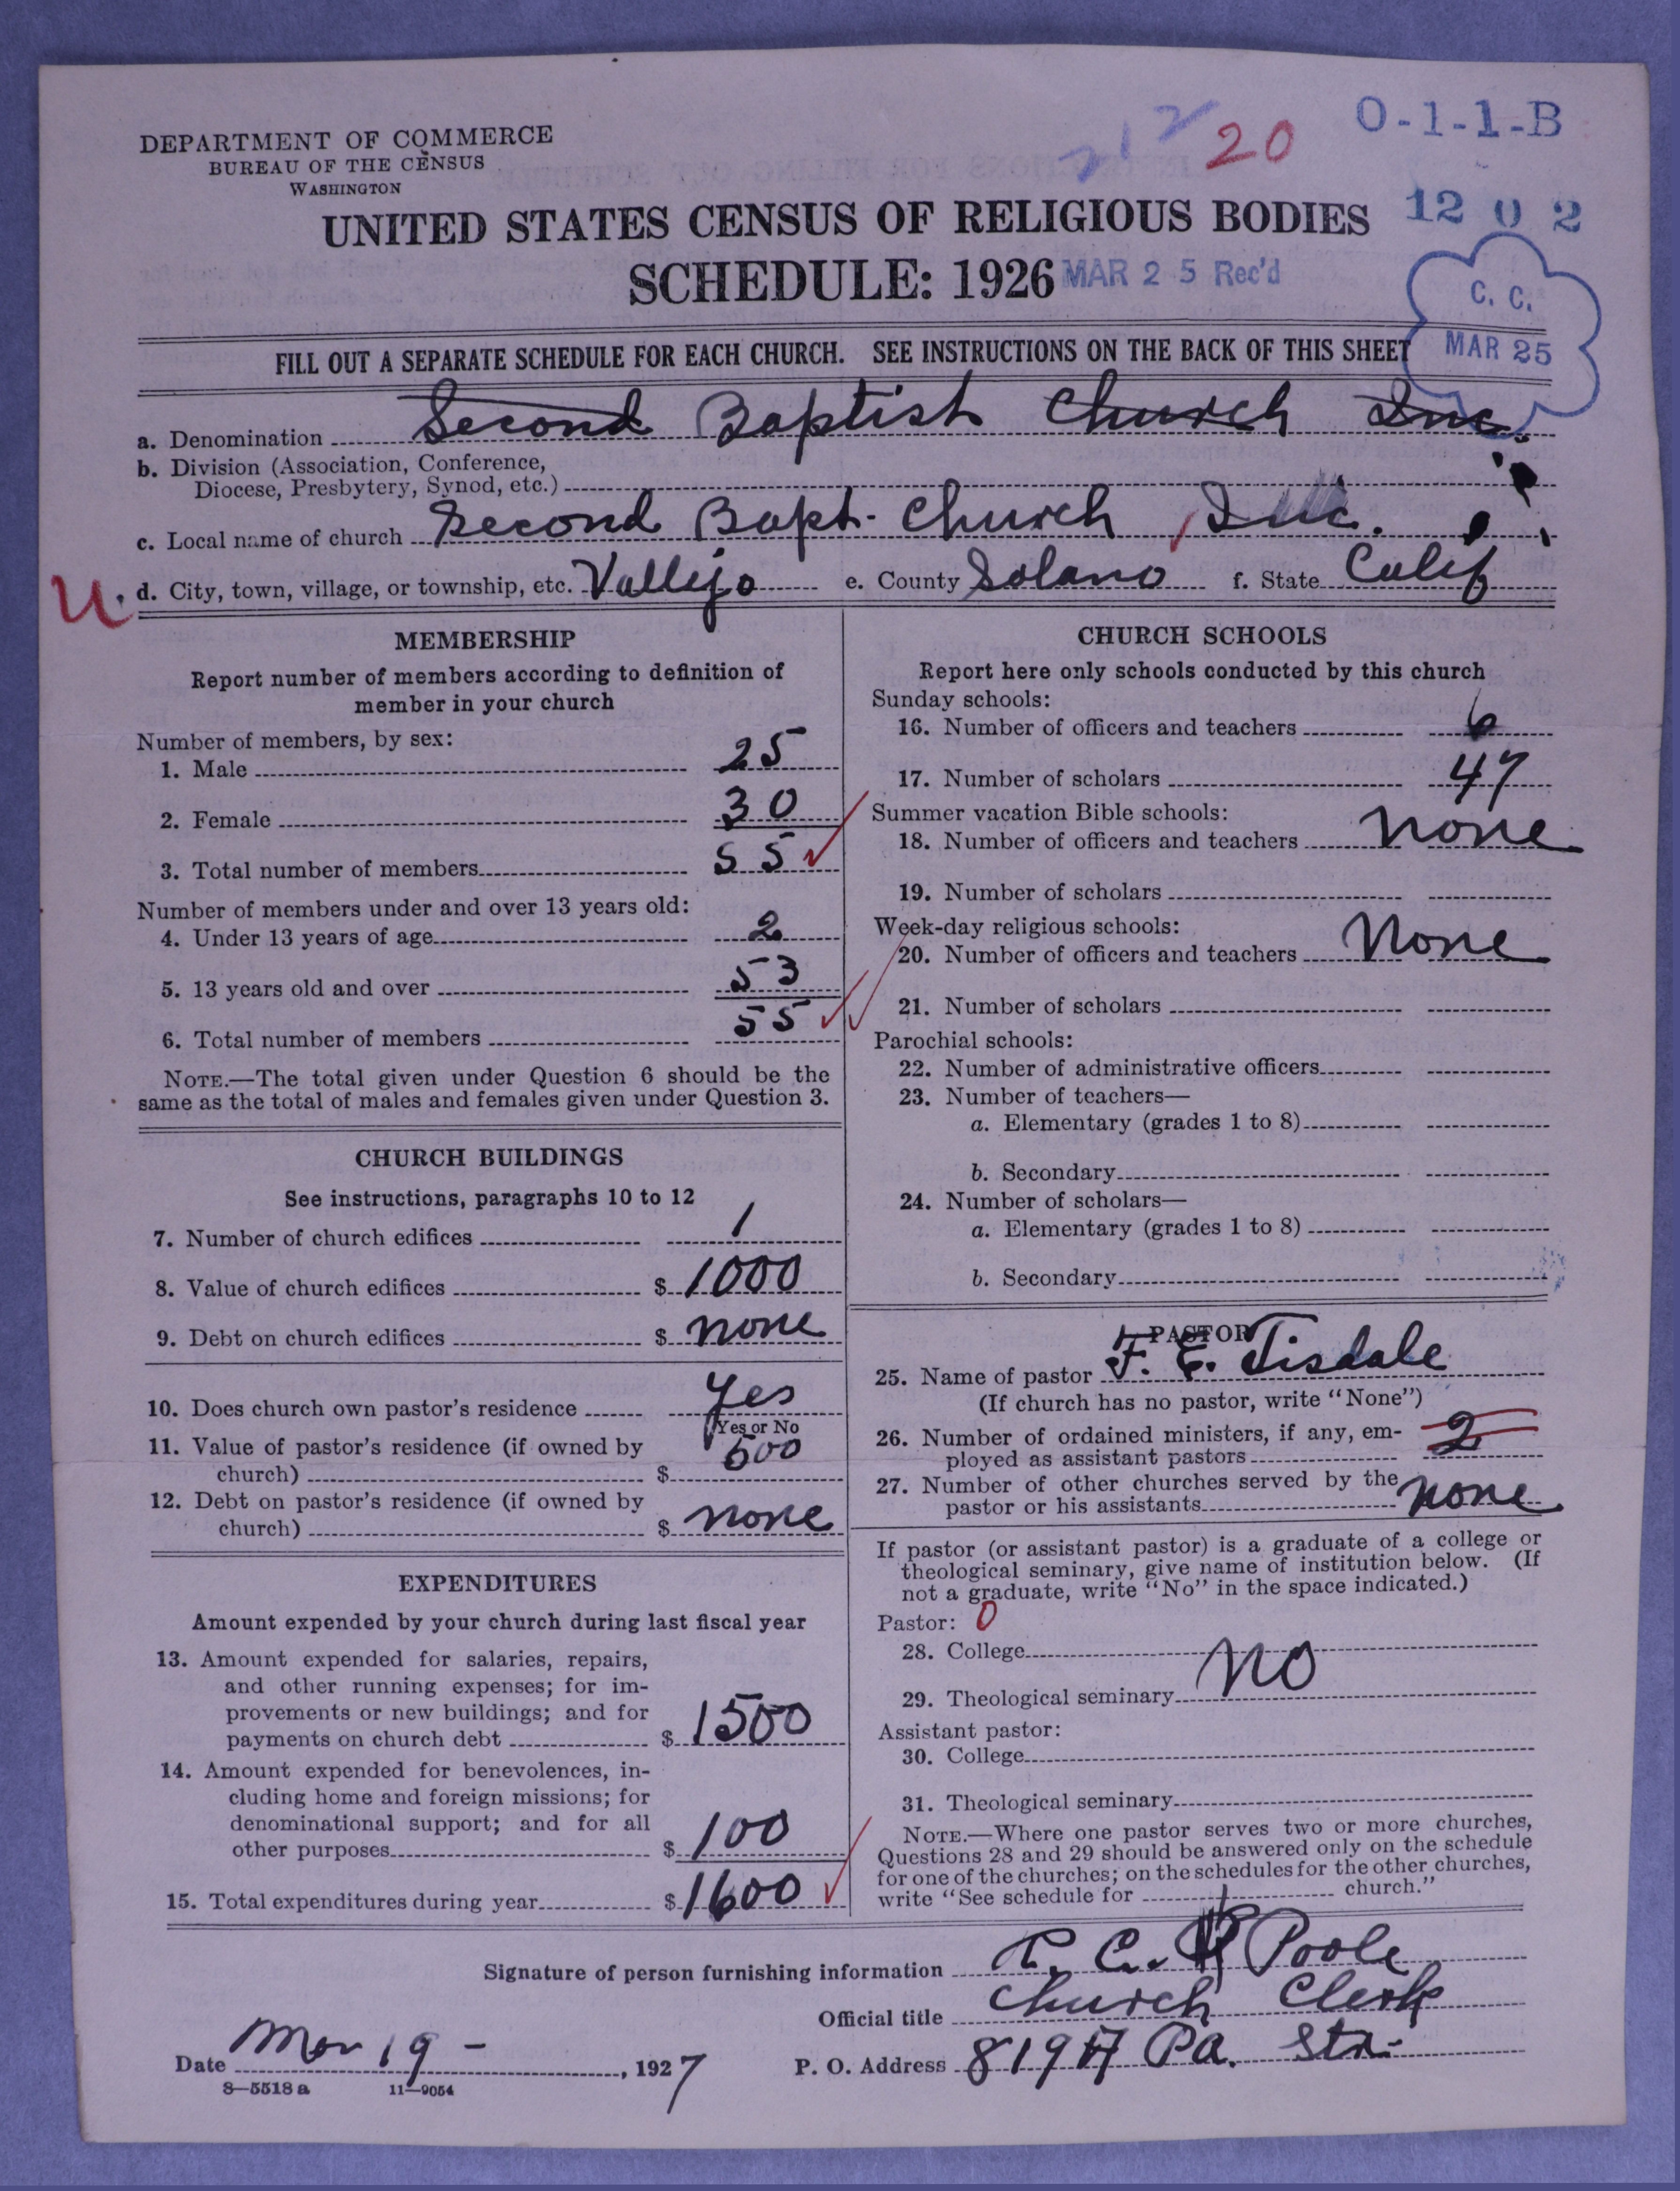 DEPARTMENT OF COMMERCE
BUREAU OF THE CENSUS
WASHINGTON
20
O-1-1-B
UNITED STATES CENSUS OF RELIGIOUS BODIES
12 0 2
SCHEDULE: 1926
MAR 2 5 Rec'd
C. C.
MAR 25
FILL OUT A SEPARATE SCHEDULE FOR EACH CHURCH. SEE INSTRUCTIONS ON THE BACK OF THIS SHEET
a. Denomination Second Baptist Church Inc.
b. Division (Association, Conference,
Diocese, Presbytery, Synod, etc.)
c. Local name of church Second Bapt. Church, Inc.
U. d. City, town, village, or township, etc. Vallejo e. County Solano f. State Calif
MEMBERSHIP
Report number of members according to definition of
member in your church
Number of members, by sex:
1. Male 25
2. Female 30
3. Total number of members 55
Number of members under and over 13 years old:
4. Under 13 years of age 2
5. 13 years old and over 53
6. Total number of members 55
NOTE.—The total given under Question 6 should be the
same as the total of males and females given under Question 3.
CHURCH BUILDINGS
See instructions, paragraphs 10 to 12
7. Number of church edifices 1
8. Value of church edifices $ 1000
9. Debt on church edifices $ none
10. Does church own pastor's residence Yes
Yes or No
11. Value of pastor's residence (if owned by
church) $ 500
12. Debt on pastor's residence (if owned by
church) $ none
EXPENDITURES
Amount expended by your church during last fiscal year
13. Amount expended for salaries, repairs,
and other running expenses; for im-
provements or new buildings; and for
payments on church debt $ 1500
14. Amount expended for benevolences, in-
cluding home and foreign missions; for
denominational support; and for all
other purposes $ 100
15. Total expenditures during year $ 1600
CHURCH SCHOOLS
Report here only schools conducted by this church
Sunday schools:
16. Number of officers and teachers 6
17. Number of scholars 47
Summer vacation Bible schools:
18. Number of officers and teachers none
19. Number of scholars
Week-day religious schools:
20. Number of officers and teachers None
21. Number of scholars
Parochial schools:
22. Number of administrative officers
23. Number of teachers—
a. Elementary (grades 1 to 8)
b. Secondary
24. Number of scholars—
a. Elementary (grades 1 to 8)
b. Secondary
PASTOR
25. Name of pastor F. E. Tisdale
(If church has no pastor, write "None")
26. Number of ordained ministers, if any, em-
ployed as assistant pastors 2
27. Number of other churches served by the
pastor or his assistants none
If pastor (or assistant pastor) is a graduate of a college or
theological seminary, give name of institution below. (If
not a graduate, write "No" in the space indicated.)
Pastor: 0
28. College
29. Theological seminary No
Assistant pastor:
30. College
31. Theological seminary
NOTE.—Where one pastor serves two or more churches,
Questions 28 and 29 should be answered only on the schedule
for one of the churches; on the schedules for the other churches,
write "See schedule for church."
Signature of person furnishing information C. Poole
Official title Church Clerk
Date Mar 19 - , 1927 P. O. Address Pa. Str.
8—5518 a 11—9054